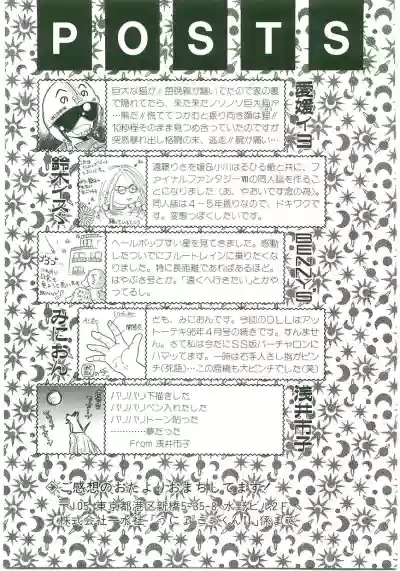 POSTS
巨大な猫が!! 苗銭親が騒いでたので家の裏
で隠れてたら、来た来たノソノソ巨大猫が…
…熊だ。慌ててつかむと振り向き顔は狸!!
10秒程そのまま見つめ合っていたのですが
突然暴れ出し格闘の末、逃走!! 腕が痛い…
愛媛イヨ
遠藤りさを嬢&小川はるひる嬢と共に、フ
ァイナルファンタジーⅦの同人誌を作る
ことになりました(あ、やおいです念の為)。
同人誌は4~5年振りなので、ドキワクで
す。変態っぽくしたいです。
ヘールボップすい星を見てきました。感動
したついでにブルートレインに乗りたくな
りました。特に長距離であればあるほど。
はやぶさ号とか。「遠くへ行きたい」とかや
ってるし。
DENNYS
ども、みにおんです。今回のDLLはアット
ーテキ96年4月号の続きです。すんませ
ん。さて私は今だにSS版バーチャロンに
ハマッてます。一時は右手人さし指がピン
チ(死語)…この原稿も大ピンチでした(笑)
みにおん
バリバリ下描きした
バリバリペン入れたした
バリバリトーン貼った
…………夢だった
From 浅井市子
浅井市子
ご感想のおたよりおまちしてます!
〒105 東京都港区新橋5-35-8 水野ビル2F